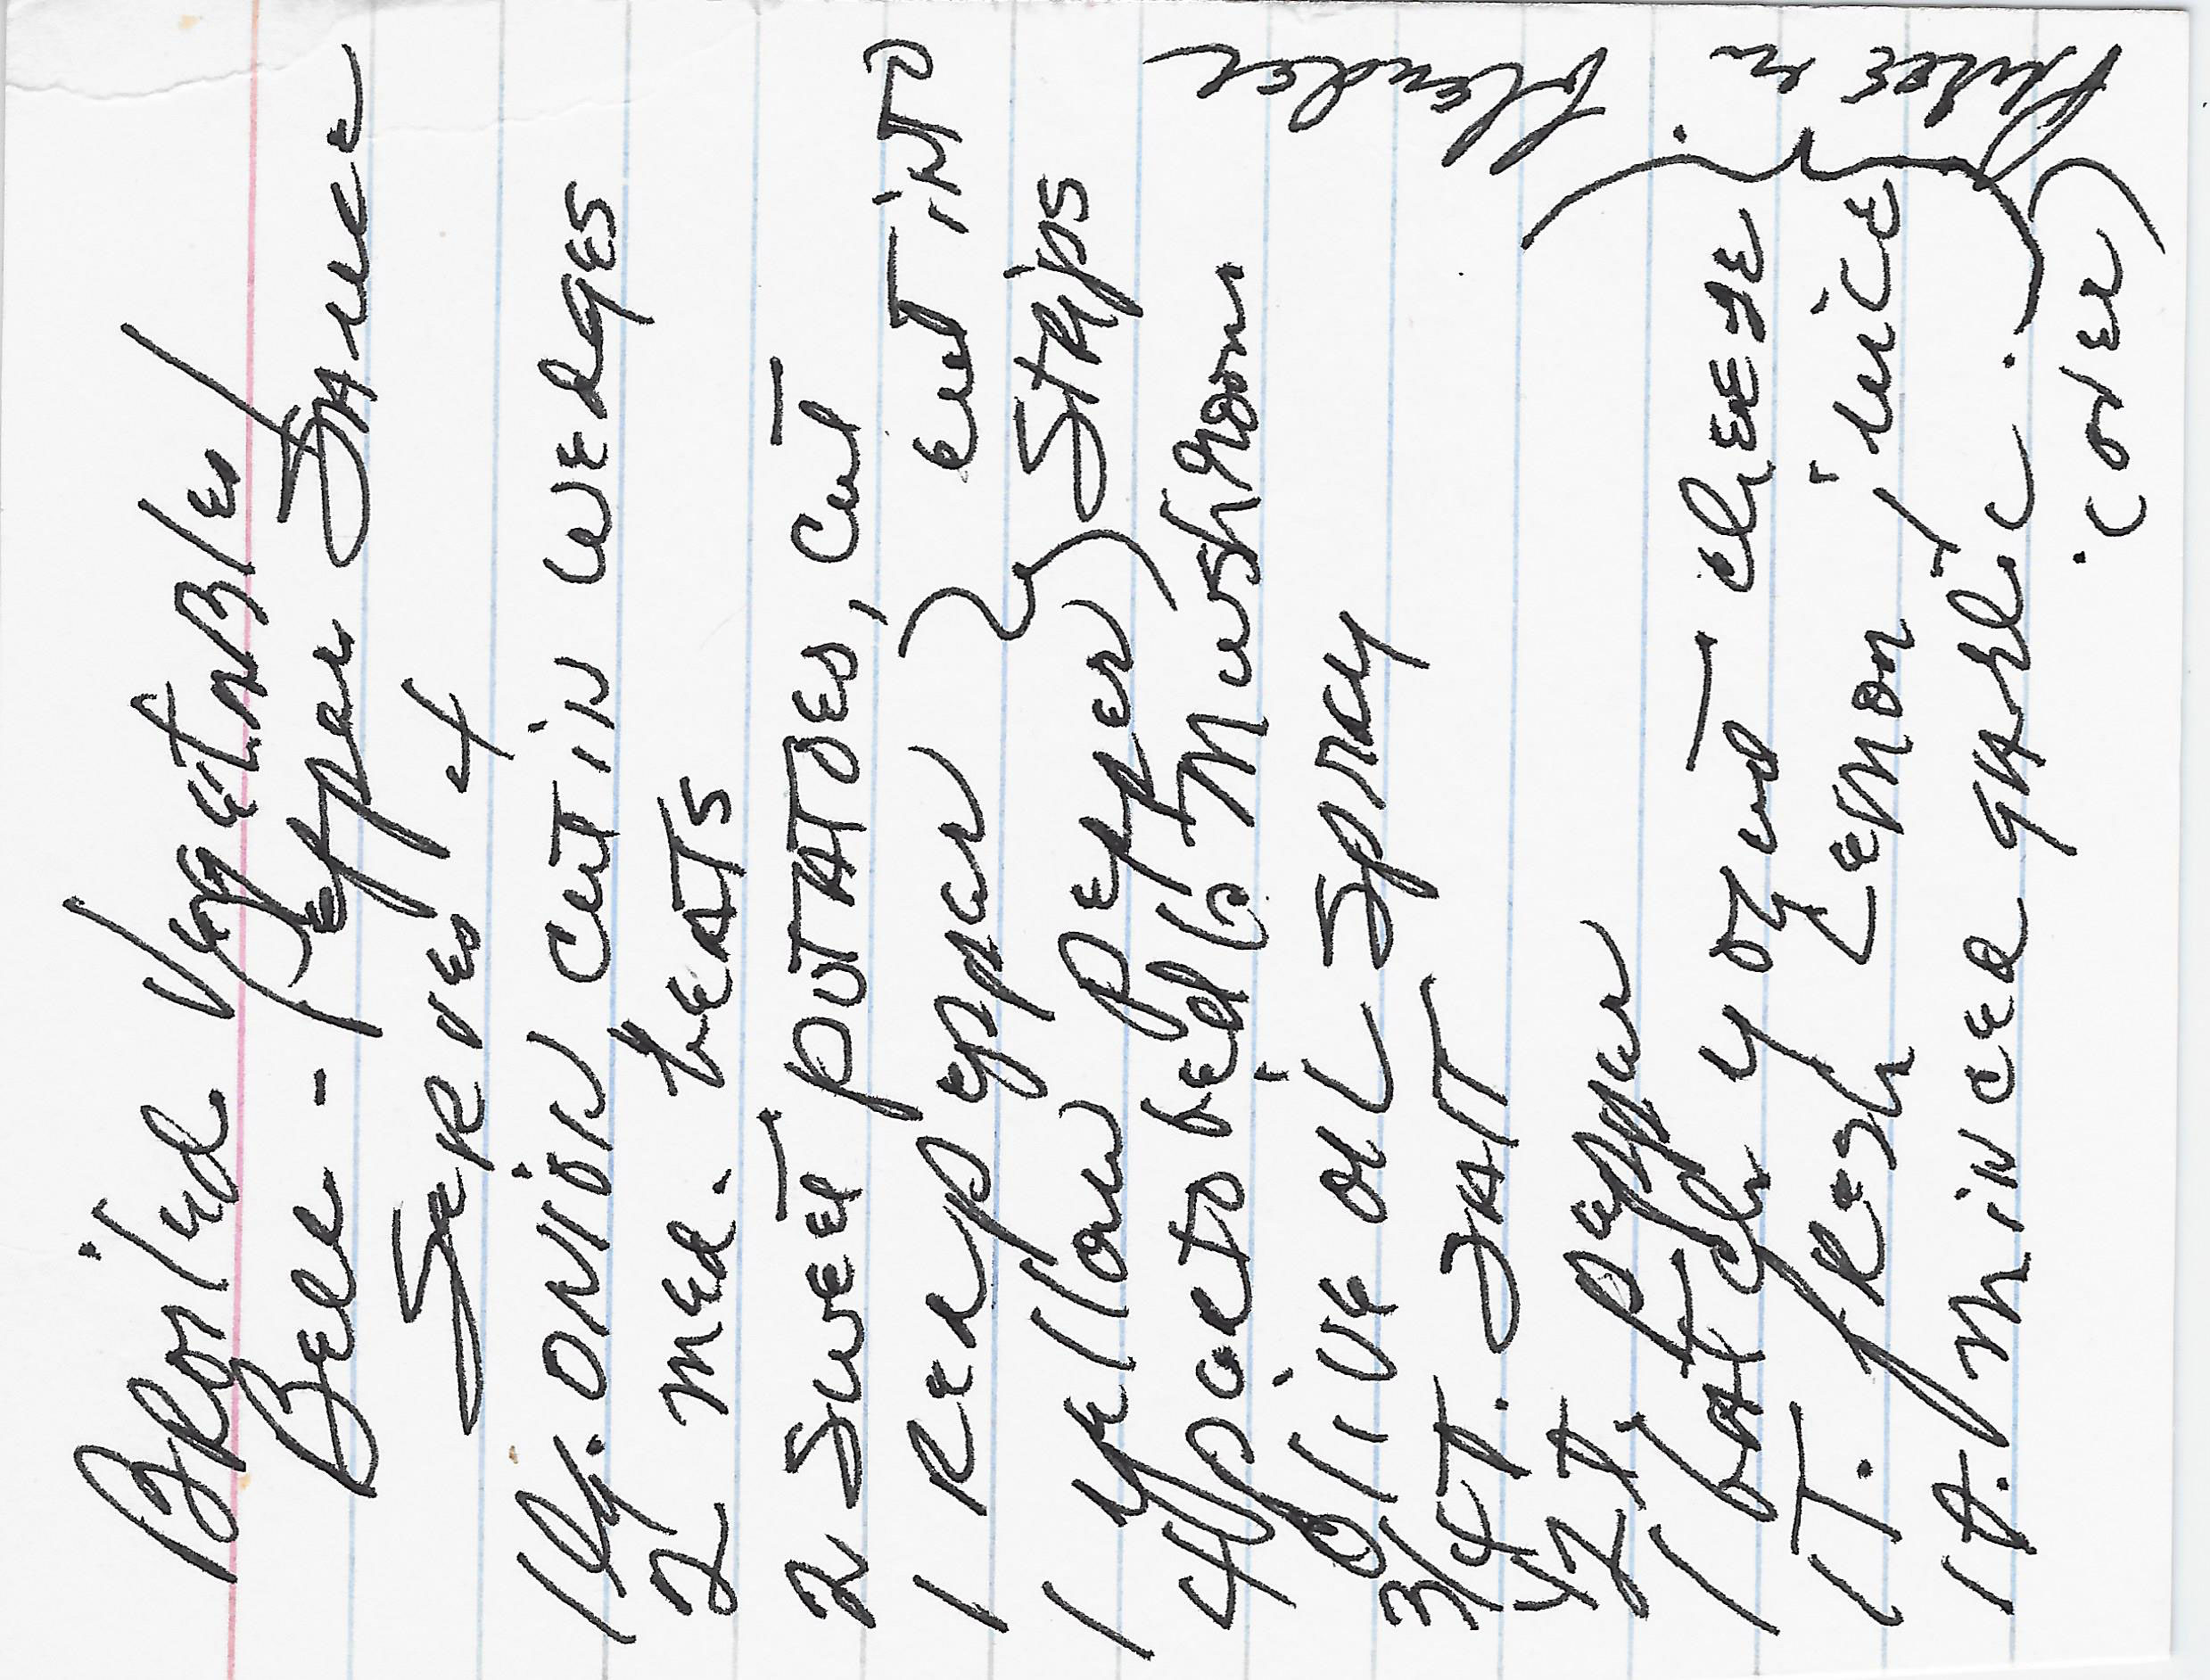 Broiled Vegetable/
Bell - Pepper Sauce
Serves 4
1 lg. ONiON cut iN wedges
2 med. beATs
2 Sweet potAToes, cut
1 Red Pepper } cut iNTo
1 Yellow Pepper } STRips
4 portobello Mushroom
Olive oiL SprAy
3/4 t. SAlT
1/2 t. pepper
1 batch yogurt cheese
1 T. fResh Lemon juice
1 t. MiNced gARlic
} Puree in
blender
(over)